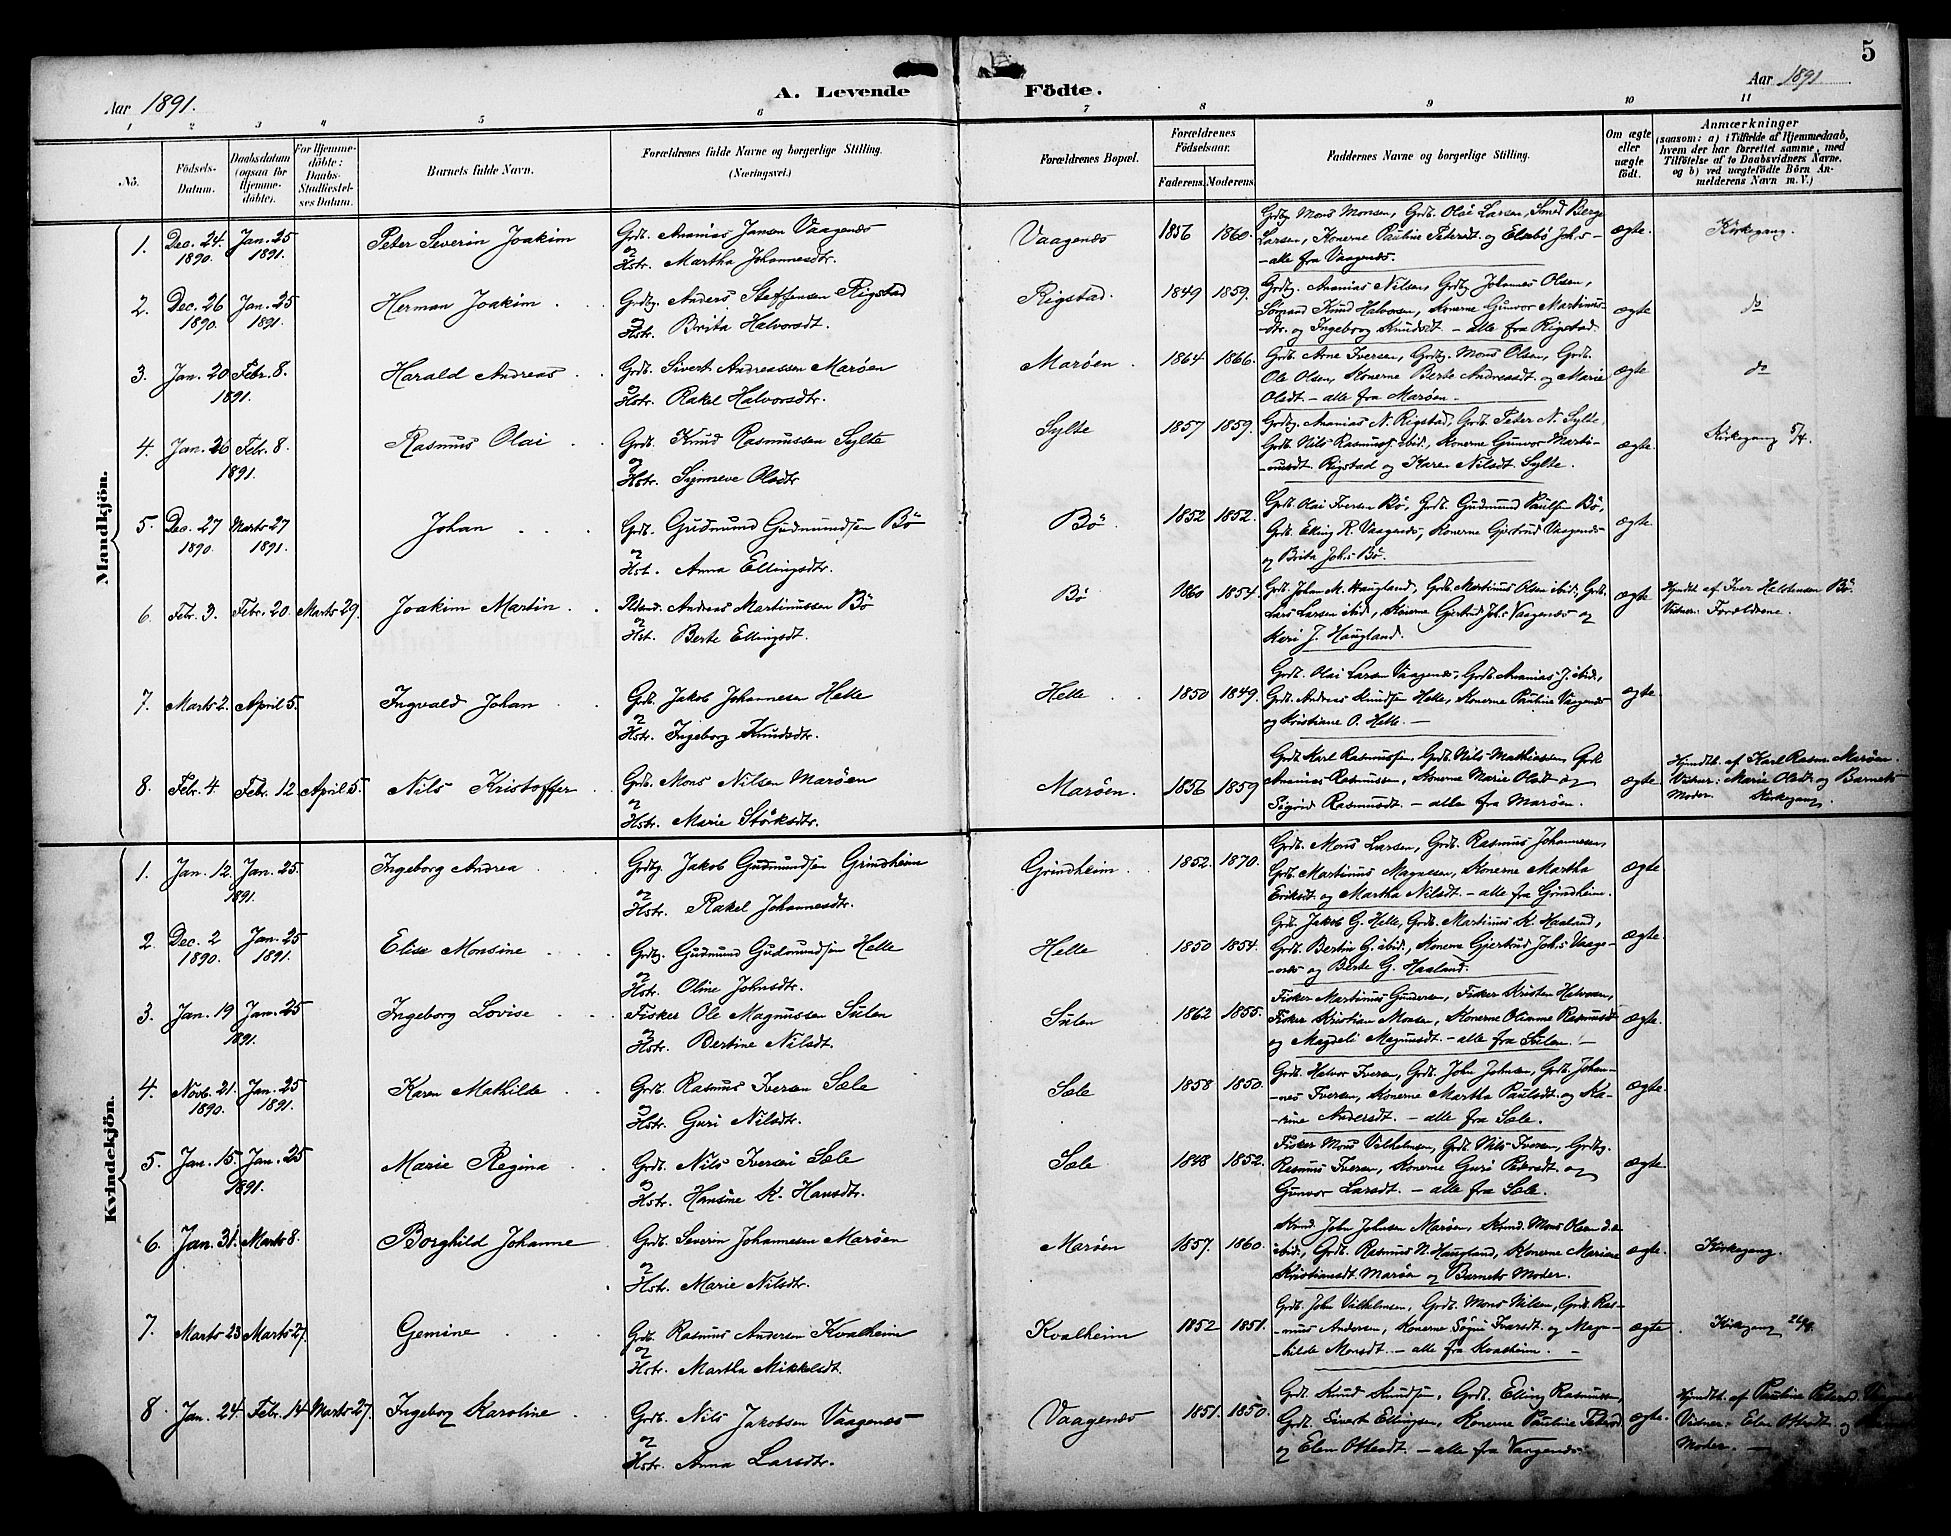 5
Aar 1891. A. Levende Födte. Aar 1891
1 2 3 4 5 6 7 8 9 10 11
Nö.
Födsels-Datum.
Daabsdatum (ogsaa for Hjemme-döbte).
For Hjemme-döbte: Daabs-Stadfæstel-ses Datum.
Barnets fulde Navn.
Forældrenes fulde Navne og borgerlige Stilling.
(Næringsvei.)
Forældrenes Bopæl.
Forældrenes Födselsaar.
Faderens. Moderens.
Faddernes Navne og borgerlige Stilling.
Om ægte eller uægte födt.
Anmærkninger
(saasom: a) i Tilfælde af Hjemmedaab, hvem der har forrettet samme, med Tilföielse af to Daabsvidners Navne, og b) ved uægtefödte Börn An-melderens Navn m. V.)
Mandkjön.
1. Dec. 24. 1890. Jan. 25 1891. Peter Severin Joakim
Grdb. Ananias Jansen Vaagenæs
og Hstr. Martha Johannesdtr.
Vaagenæs 1856 1860.
Grdbg. Mons Monsen, Grdb. Olai Larsen, Smed Berge
Larsen, Konerne Pauline Petersdt. og Elsebö Joh.s-
-alle fra Vaagenæs.
ægte. Kirkegang.
2. Dec. 26 1890. Jan. 25 1891. Herman Joakim
Grdbg. Anders Steffensen Rigstad
og Hstr. Brita Halvorsdt.
Rigstad. 1849 1859.
Grdbg. Ananias Nilsen, Grdbg. Johannes Olsen,
Sömand Knud Halvorsen, Konerne Gunvor Martinus-
-dtr. og Ingeborg Knudsdt. - alle fra Rigstad.
ægte do
3. Jan. 20 Febr. 8. 1891. Harald Andreas
Grdb. Sivert Andreassen Maröen
og Hstr. Rakel Halvorsdtr.
Maröen. 1864 1866.
Grdb. Arne Iversen, Grdbg. Mons Olsen, Grdb.
Ole Olsen, Konerne Berte Andreasdt. og Marie
Olsdt. - alle fra Maröen.
ægte do
4. Jan. 26 Febr. 8. 1891. Rasmus Olai
Grdb. Knud Rasmussen Sylte
og Hstr. Synneve Olsdtr
Sylte 1857 1859.
Grdbg. Ananias N. Rigstad, Grdb. Peter N. Sylte,
Grdb. Nils Rasmuss. ibid., Konerne Gunvor Marti-
-nusdt. Rigstad og Karen Nilsdt. Sylte.
ægte. Kirkegang 5/4.
5. Dec. 27 1890. Marts 27 1891. Johan
Grdb. Gudmund Gudmundsen Bö
og Hst. Anna Ellingsdtr.
Bö. 1852 1852.
Grdb. Olai Iversen Bö, Grdb. Gudmund Paulsen Bö,
Grdb. Elling R. Vaagenæs, Konerne Gjertrud Vaagenæs
og Brita Joh.s Bö.
ægte
6. Febr. 3. Febr. 20 Marts 29. Joakim Martin
Andreas Martinussen Bö
og Hst. Berte Ellingsdt.
Bö 1860 1854.
Grdb. Johan M. Haugland, Grdb. Martinus Olsen ibid., Grdb.
Lars Larsen ibid., Konerne Gjertrud Joh.s Vaagenæs og
Keri J. Haugland.
ægte
Hjmdbt. af Iver Halstensen Bö.
Vidner: Forældrene.
7. Marts 2. April 5. Ingvald Johan
Grdb. Jakob Johannesen Helle
og Hstr. Ingeborg Knudsdtr.
Helle 1850 1849.
Grdb. Olai Larsen Vaagenæs, Grdb. Ananias J. ibid.,
Grdb. Andreas Knudsen Helle, Konerne Pauline Vaagenæs
og Kristiane O. Helle. -
ægte
8. Febr. 4 Febr. 12 April 5. Nils Kristoffer
Grdb. Mons Nilsen Maröen
og Hstr. Marie Störksdtr.
Maröen. 1856 1859
Grdb. Karl Rasmussen, Grdb. Nils Mathiassen, Grdb.
Ananias Rasmussen, Konerne Marie Olsdt. og
Sigrid Rasmusdt. - alle fra Maröen.
ægte
Hjmdbt. af Karl Rasm. Maröen.
Vidner: Marie Olsdt. og Barnets
Moder. Kirkegang.
Kvindekjön.
1. Jan. 12. Jan. 25. 1891. Ingeborg Andrea
Grdbg. Jakob Gudmundsen Grindheim
og Hstr. Rakel Johannesdtr.
Grindheim. 1852. 1870.
Grdb. Mons Larsen, Grdb. Rasmus Johannesen,
Grdb. Martinus Magnssen, Konerne Martha
Eriksdt. og Martha Nilsdt. - alle fra Grindheim.
ægte
2. Dec. 2 1890. Jan. 25 1891. Elise Monsine
Grdbg. Gudmund Gudmundsen Helle
og Hstr. Oline Johnsdtr.
Helle 1850 1854.
Grdb. Jakob G. Helle, Grdb. Martinus K. Haaland,
Grdb. Bertin G. ibid., Konerne Gjertrud Joh.s Vaage-
-næs og Berte G. Haaland.
ægte.
3. Jan. 19 Jan. 25 1891. Ingeborg Lovise
Fisker Ole Magnussen Sulen
og Hstr. Bertine Nilsdt.
Sulen 1862 1855.
Fisker Martinus Gundersen, Fisker Kristen Halvorsen,
Fisker Kristian Monsen, Konerne Olianne Rasmusdt.
og Magdeli Magnusdt. - alle fra Sulen. -
ægte.
4. Novb. 21. 1890. Jan. 25 1891. Karen Mathilde
Grdb. Rasmus Iversen Sæle
og Hstr. Guri Nilsdtr.
Sæle 1858 1850.
Grdb. Halvor Iversen, Grdb. John Johnsen, Grdb. Johan-
-nes Iversen, Konerne Martha Paulsdt. og Ka-
-rine Andersdt. - alle fra Sæle.
ægte.
5. Jan. 15. Jan. 25 1891. Marie Regina
Grdb. Nils Iversen Sæle
og Hstr. Hansine K. Hansdtr.
Sæle 1848 1852.
Fisker Mons Vilhelmsen, Grdb. Nils Iversen, Grdbg.
Rasmus Iversen, Konerne Guri Pedersdt. og
Gunvor Larsdt. - alle fra Sæle.
ægte.
6. Jan. 31. Marts 8. Borghild Johanne
Grdb. Severin Johannesen Maröen
og Hstr. Marie Nilsdtr.
Maröen 1857. 1860.
Kmd. John Johnsen Maröen, Kmd. Mons Olsen d.æ.
ibid., Grdb. Rasmus N. Haugland, Konerne Mariane
Kristiansdt. Maröen og Barnets Moder.
ægte. Kirkegang.
7. Marts 23 Marts 27. Gemine
Grdb. Rasmus Andersen Kvalheim
og Hstr. Martha Mikkelsdt.
Kvalheim 1852 1851.
Grdb. John Vilhelmsen, Grdb. Mons Nilsen, Grdb. Ras-
-mus Andersen, Konerne Sögni Ivarsdt. og Magn-
-hilde Monsdt. - alle fra Kvalheim. -
ægte. Kirkegang
8 Jan. 24. Febr. 14 Marts 27. Ingeborg Karoline
Grdb. Nils Jakobsen Vaagenæs
og Hstr. Anna Larsdtr.
Vaagenæs 1851. 1850.
Grdb. Knud Knudsen, Grdb. Elling Rasmussen,
Grdb. Sivert Ellingsen, Konerne Pauline Petersd.
og Elen Ottesdt. - alle fra Vaagenæs.
ægte.
Hjmdbt. af Pauline Petersd.
Vidner: Elen Ottesdt. og
Moder. -